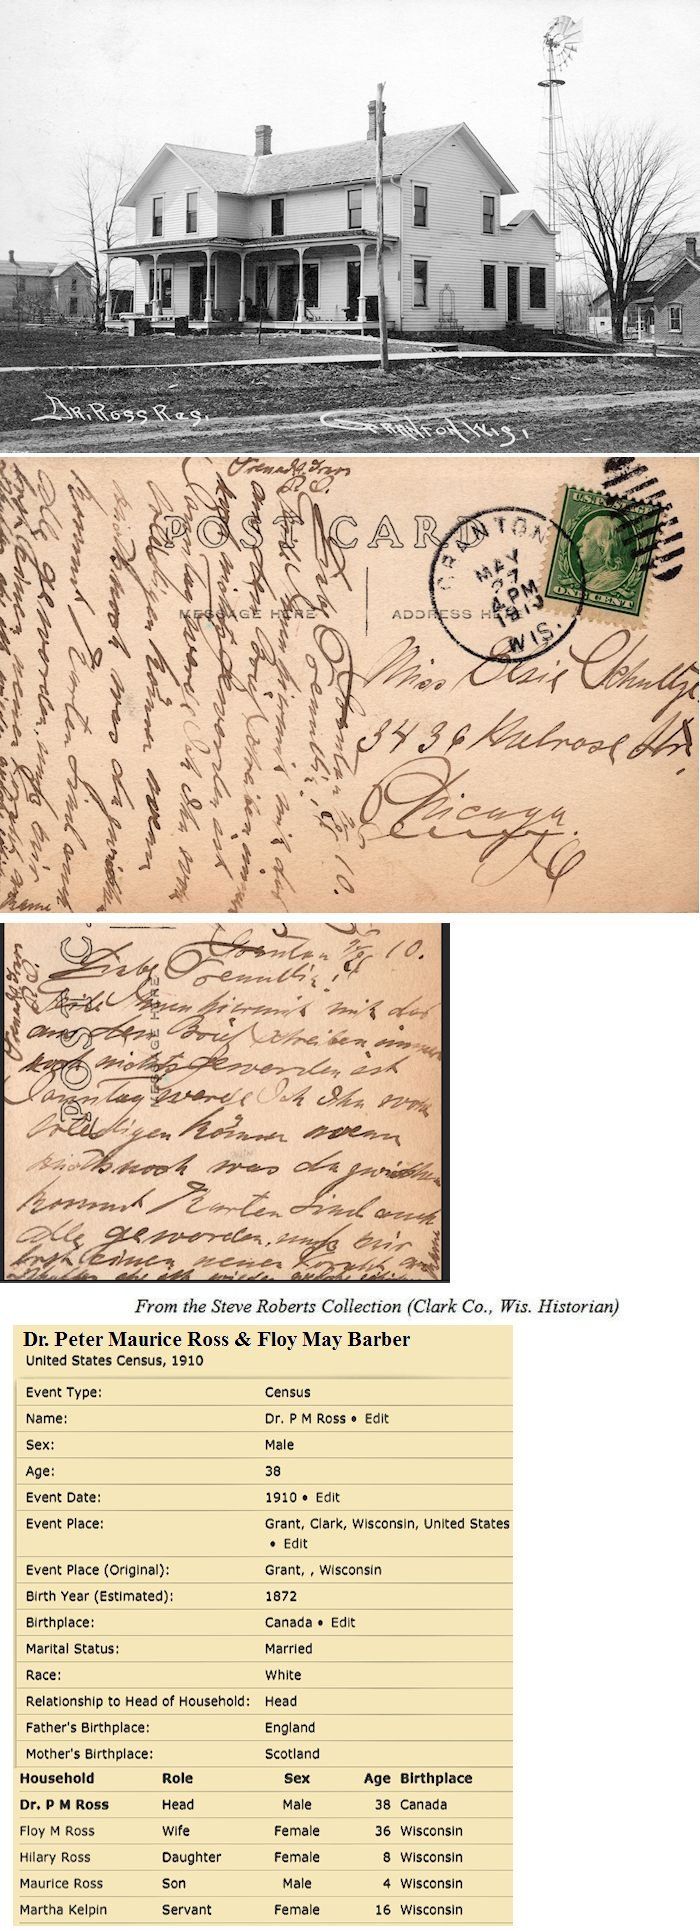 Dr. Ross Res.
Granton Wis.
POST CARD
MESSAGE HERE
ADDRESS HERE
GRANTON
MAY
27
4 PM
1910
WIS.
U.S. POSTAGE
ONE CENT
Miss Elsie Schultze
3436
Chicago
Ill
Granton 10.
Liebe
hiermit mit das
aus dem Brief schreiben immer
noch nichts geworden ist
Sonntag werde Ich Ihn
erledigen können wenn
nicht noch was dazwischen
kommt Karten sind auch
alle geworden, muß mir
erst einen neuen
POST C
MESSAGE HERE
From the Steve Roberts Collection (Clark Co., Wis. Historian)
Dr. Peter Maurice Ross & Floy May Barber
United States Census, 1910
Event Type: Census
Name: Dr. P M Ross • Edit
Sex: Male
Age: 38
Event Date: 1910 • Edit
Event Place: Grant, Clark, Wisconsin, United States
• Edit
Event Place (Original): Grant, , Wisconsin
Birth Year (Estimated): 1872
Birthplace: Canada • Edit
Marital Status: Married
Race: White
Relationship to Head of Household: Head
Father's Birthplace: England
Mother's Birthplace: Scotland
Household Role Sex Age Birthplace
Dr. P M Ross Head Male 38 Canada
Floy M Ross Wife Female 36 Wisconsin
Hilary Ross Daughter Female 8 Wisconsin
Maurice Ross Son Male 4 Wisconsin
Martha Kelpin Servant Female 16 Wisconsin